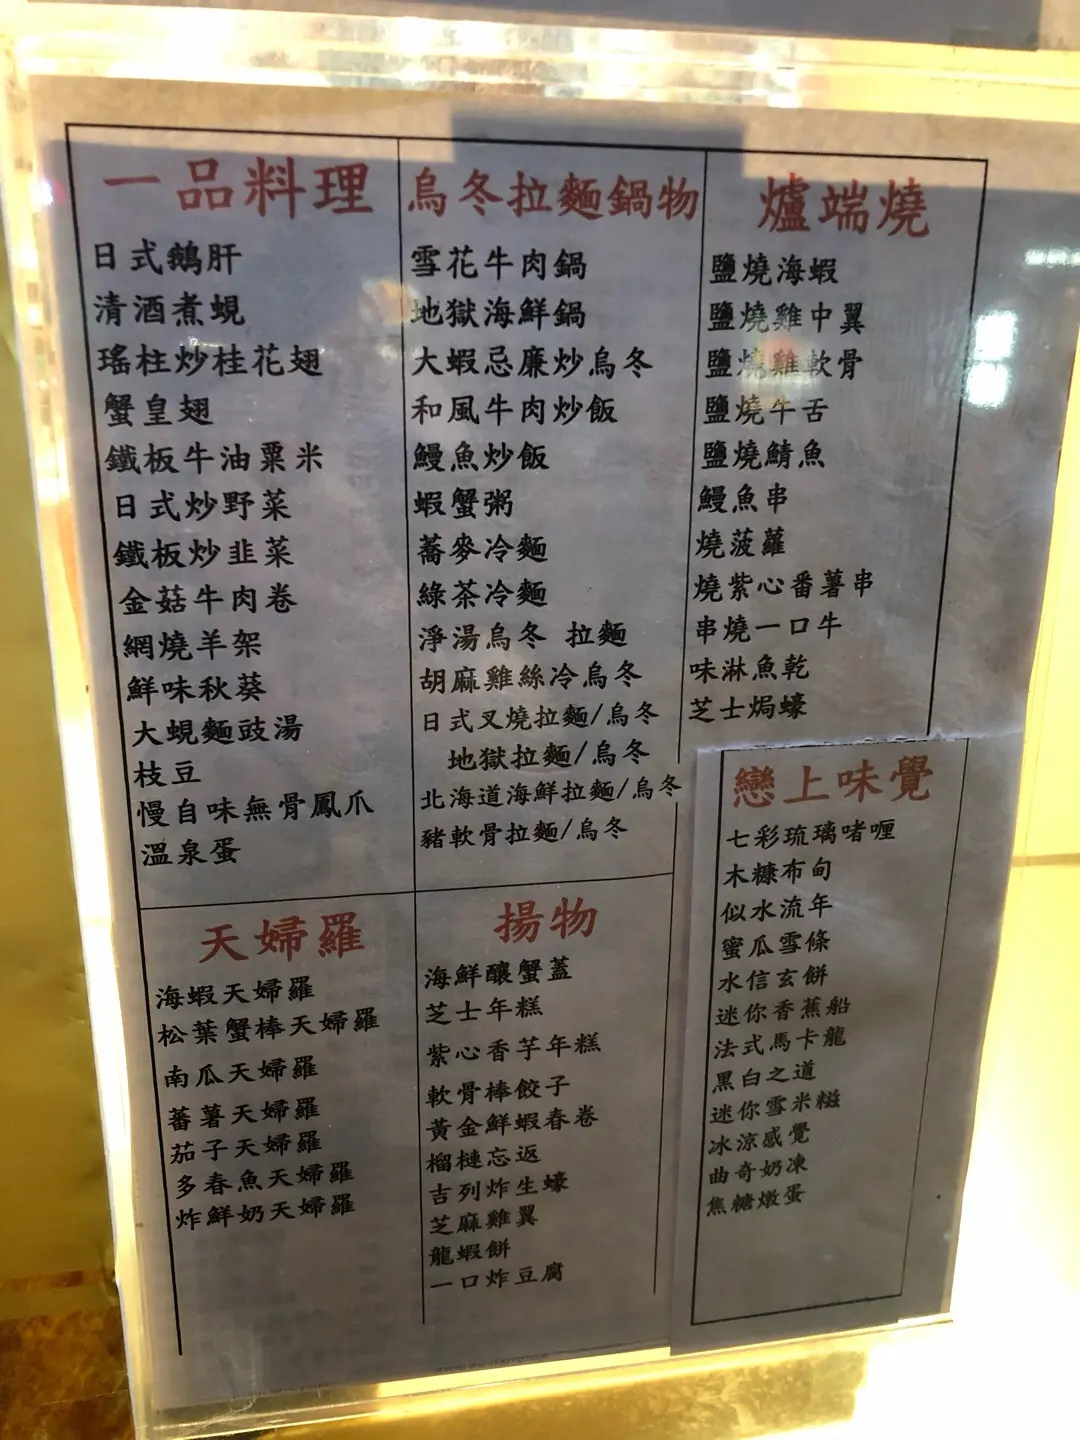 一品料理
日式鵝肝
清酒煮蜆
瑤柱炒桂花翅
蟹皇翅
鐵板牛油粟米
日式炒野菜
鐵板炒韭菜
金菇牛肉卷
網燒羊架
鮮味秋葵
大蜆麵豉湯
枝豆
慢自味無骨鳳爪
溫泉蛋
烏冬拉麵鍋物
雪花牛肉鍋
地獄海鮮鍋
大蝦忌廉炒烏冬
和風牛肉炒飯
鰻魚炒飯
蝦蟹粥
蕎麥冷麵
綠茶冷麵
淨湯烏冬 拉麵
胡麻雞絲冷烏冬
日式叉燒拉麵/烏冬
地獄拉麵/烏冬
北海道海鮮拉麵/烏冬
豬軟骨拉麵/烏冬
爐端燒
鹽燒海蝦
鹽燒雞中翼
鹽燒雞軟骨
鹽燒牛舌
鹽燒鯖魚
鰻魚串
燒菠蘿
燒紫心番薯串
串燒一口牛
味淋魚乾
芝士焗蠔
天婦羅
海蝦天婦羅
松葉蟹棒天婦羅
南瓜天婦羅
蕃薯天婦羅
茄子天婦羅
多春魚天婦羅
炸鮮奶天婦羅
揚物
海鮮釀蟹蓋
芝士年糕
紫心香芋年糕
軟骨棒餃子
黃金鮮蝦春卷
榴槤忘返
吉列炸生蠔
芝麻雞翼
龍蝦餅
一口炸豆腐
戀上味覺
七彩琉璃啫喱
木糠布甸
似水流年
蜜瓜雪條
水信玄餅
迷你香蕉船
法式馬卡龍
黑白之道
迷你雪米糍
冰涼感覺
曲奇奶凍
焦糖燉蛋